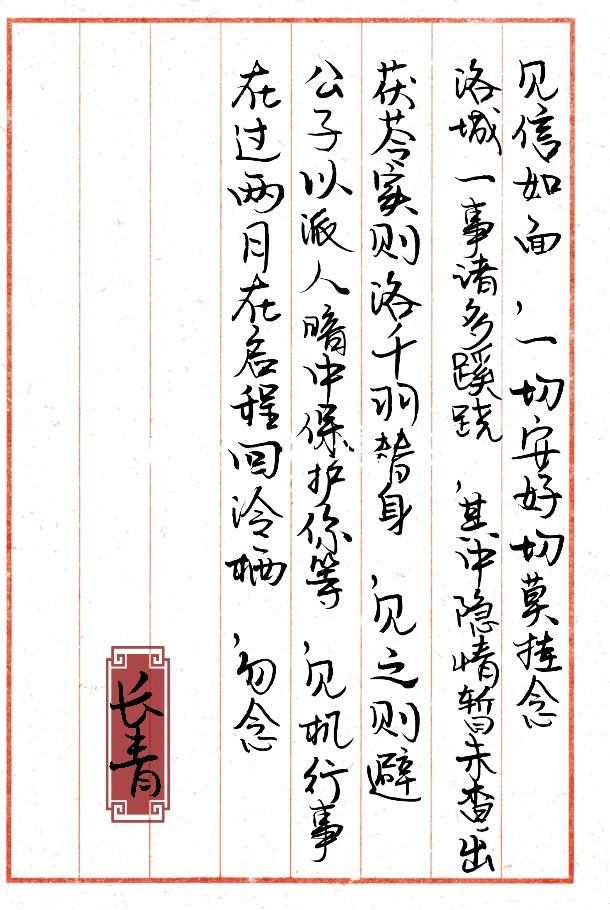 见信如面，一切安好切莫挂念
洛城一事诸多蹊跷，其中隐情暂未查出
茯苓实则洛千羽替身，见之则避
公子以派人暗中保护你等，见机行事
在过两月在启程回泠栖，勿念
长青